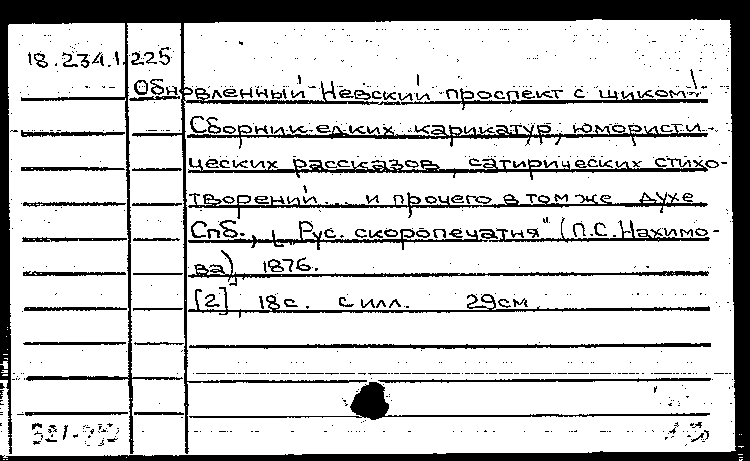 18.234.1.225
Обновленный Невский проспект с шиком!.
Сборник едких карикатур, юмористи-
ческих рассказов, сатирических стихо-
творений... и прочего в том же духе
Спб., „Рус. скоропечатня" (П.С. Нахимо-
ва), 1876.
[2], 18 с. с илл. 29см.